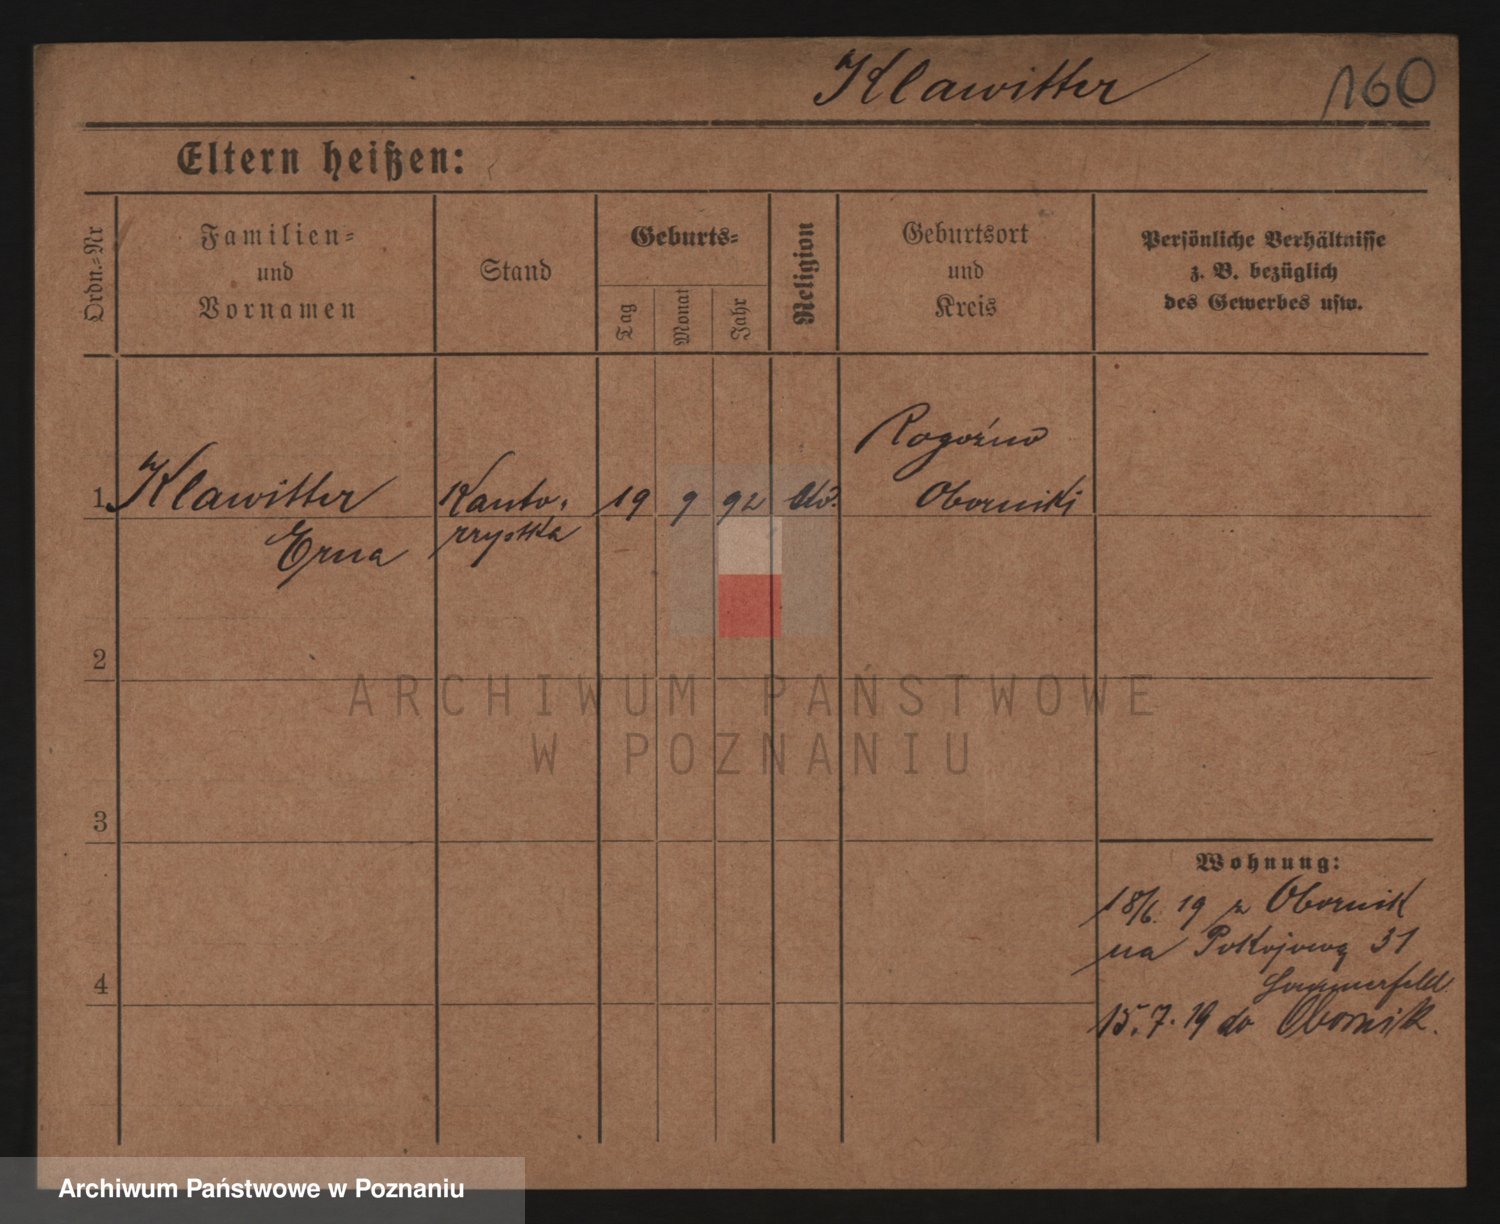 Klawitter 160
Eltern heißen:
Ordn.-Nr
Familien-
und
Vornamen
Stand
Geburts-
Tag
Monat
Jahr
Religion
Geburtsort
und
Kreis
Persönliche Verhältnisse
z. B. bezüglich
des Gewerbes usw.
Rogoźno
1 Klawitter Kanto- 19 9 92 Oborniki
Erna rzystka
2
ARCHIWUM PAŃSTWOWE
W POZNANIU
3
Wohnung:
18/6. 19 z Obornik
na Pokojową 31
Sommerfeld
4
15. 7. 19 do Obornik.
Archiwum Państwowe w Poznaniu